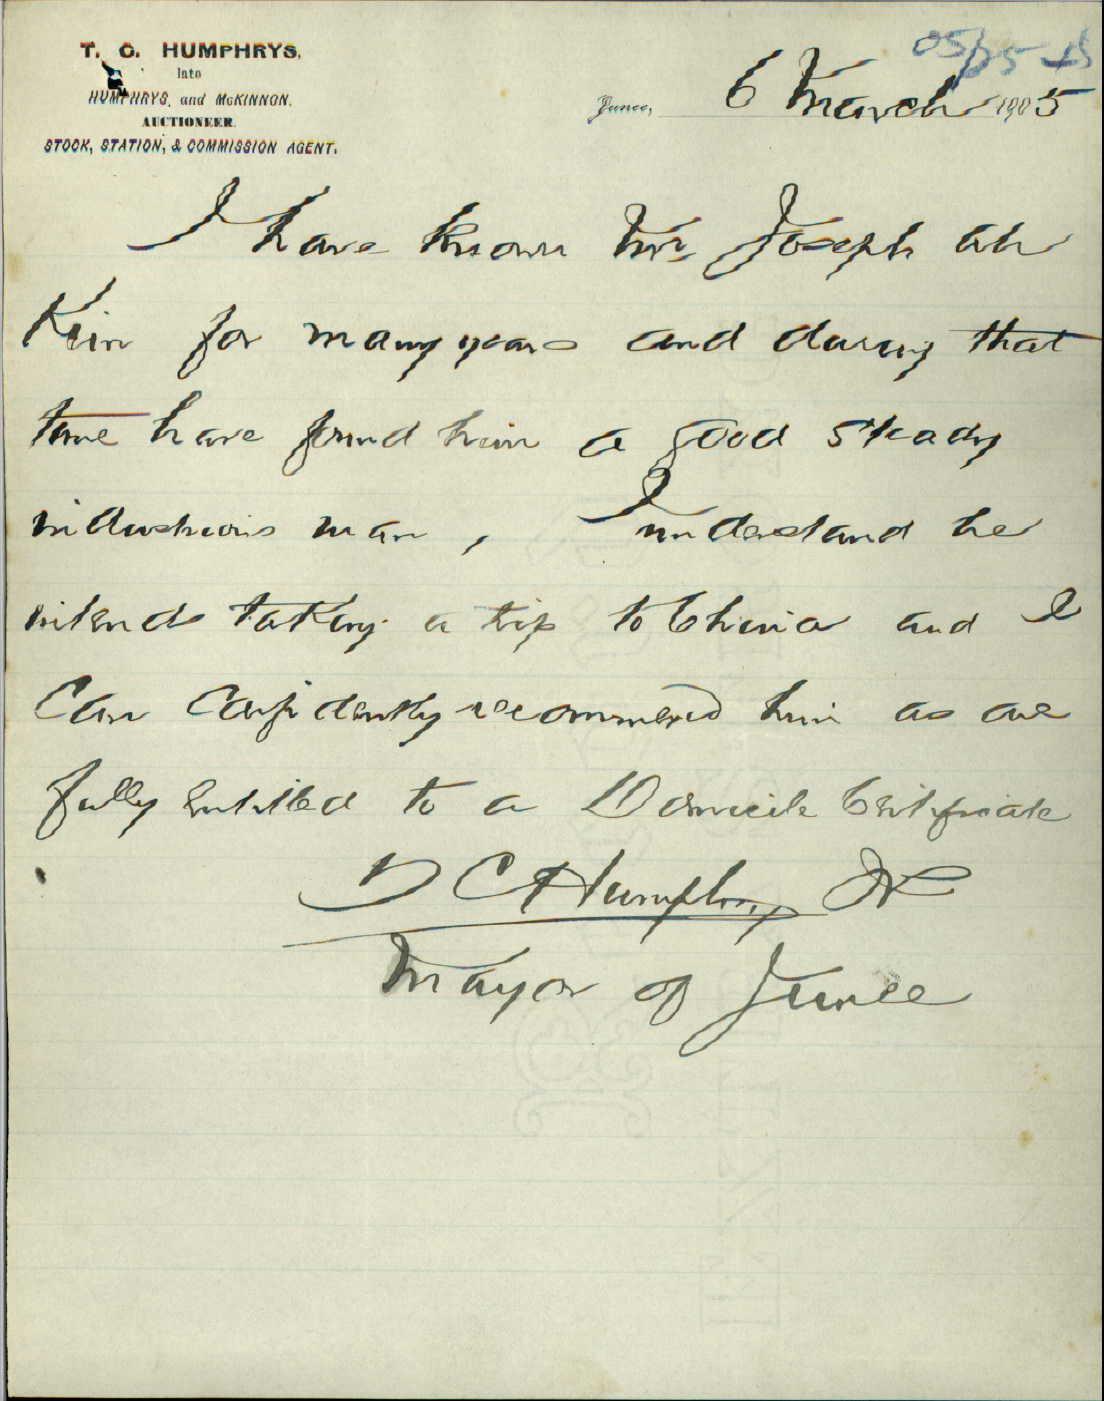 T. C. HUMPHRYS,
late
HUMPHRYS, and McKINNON,
AUCTIONEER.
STOCK, STATION, & COMMISSION AGENT.
Junee, 6 March 1905
I have known Mr Joseph ah
Kin for many years and during that
time have found him a good steady
industrious man, I understand he
intends taking a trip to China and I
Can confidently recommend him as one
fully entitled to a Domicile Certificate
T C Humphrys JP
Mayor of Junee